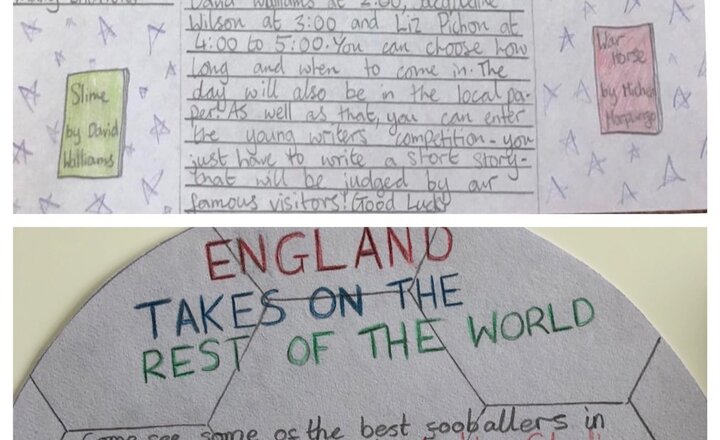 David Williams at 2:00, Jacqueline
Wilson at 3:00 and Liz Pichon at
4:00 to 5:00. You can choose how
long and when to come in. The
day will also be in the local pa-
per. As well as that, you can enter
the young writers' competition - you
just have to write a short story -
that will be judged by our
famous visitors! Good Luck!
Slime
by David
Williams
War
Horse
by Michael
Morpurgo
ENGLAND
TAKES ON THE
REST OF THE WORLD
Come see some of the best sooballers in